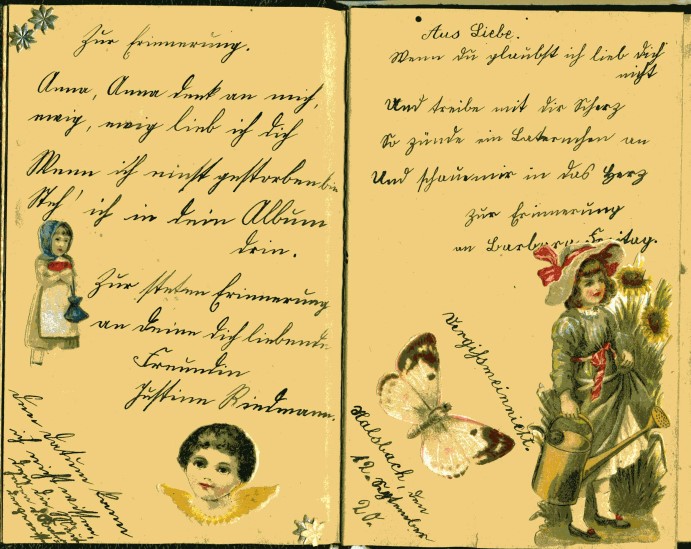 Zur Erinnerung.
Anna, Anna denk an mich,
ewig, ewig lieb ich dich
Wenn ich einst gestorben bin
Steh' ich in dein Album
drin.
Zur steten Erinnerung
an deine dich liebende
Freundin
Justine Riedmann.
Den Datum kann
ich nicht wissen,
Aus Liebe.
Wenn du glaubst ich lieb dich
nicht
Und treibe mit dir Scherz
So zünde ein Laternchen an
Und schaue mir in das Herz
Zur Erinnerung
an Barbara Freitag.
Vergißmeinnicht.
Halsbach, den
12. September
20.